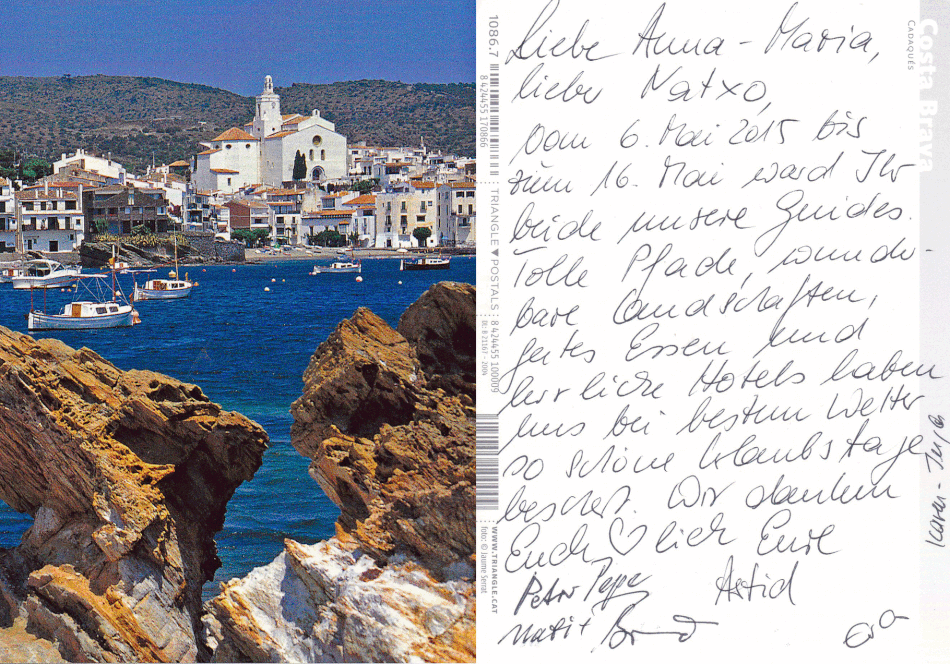 Liebe Anna-Maria,
lieber Natxo,
vom 6. Mai 2015 bis
zum 16. Mai ward Ihr
beide unsere Guides.
Tolle Pfade, wunder
bare Landschaften,
gutes Essen und
herrliche Hotels haben
uns bei bestem Wetter
so schöne Urlaubstage
beschert. Wir danken
Euch ♡lich Eure
Peter Astrid
Eva
1086.7
8 424455 170866
TRIANGLE ▼ POSTALS
8 424455 100009
DL: B 21167 - 2004
WWW.TRIANGLE.CAT
foto: © Jaume Serrat
Costa Brava
CADAQUÉS